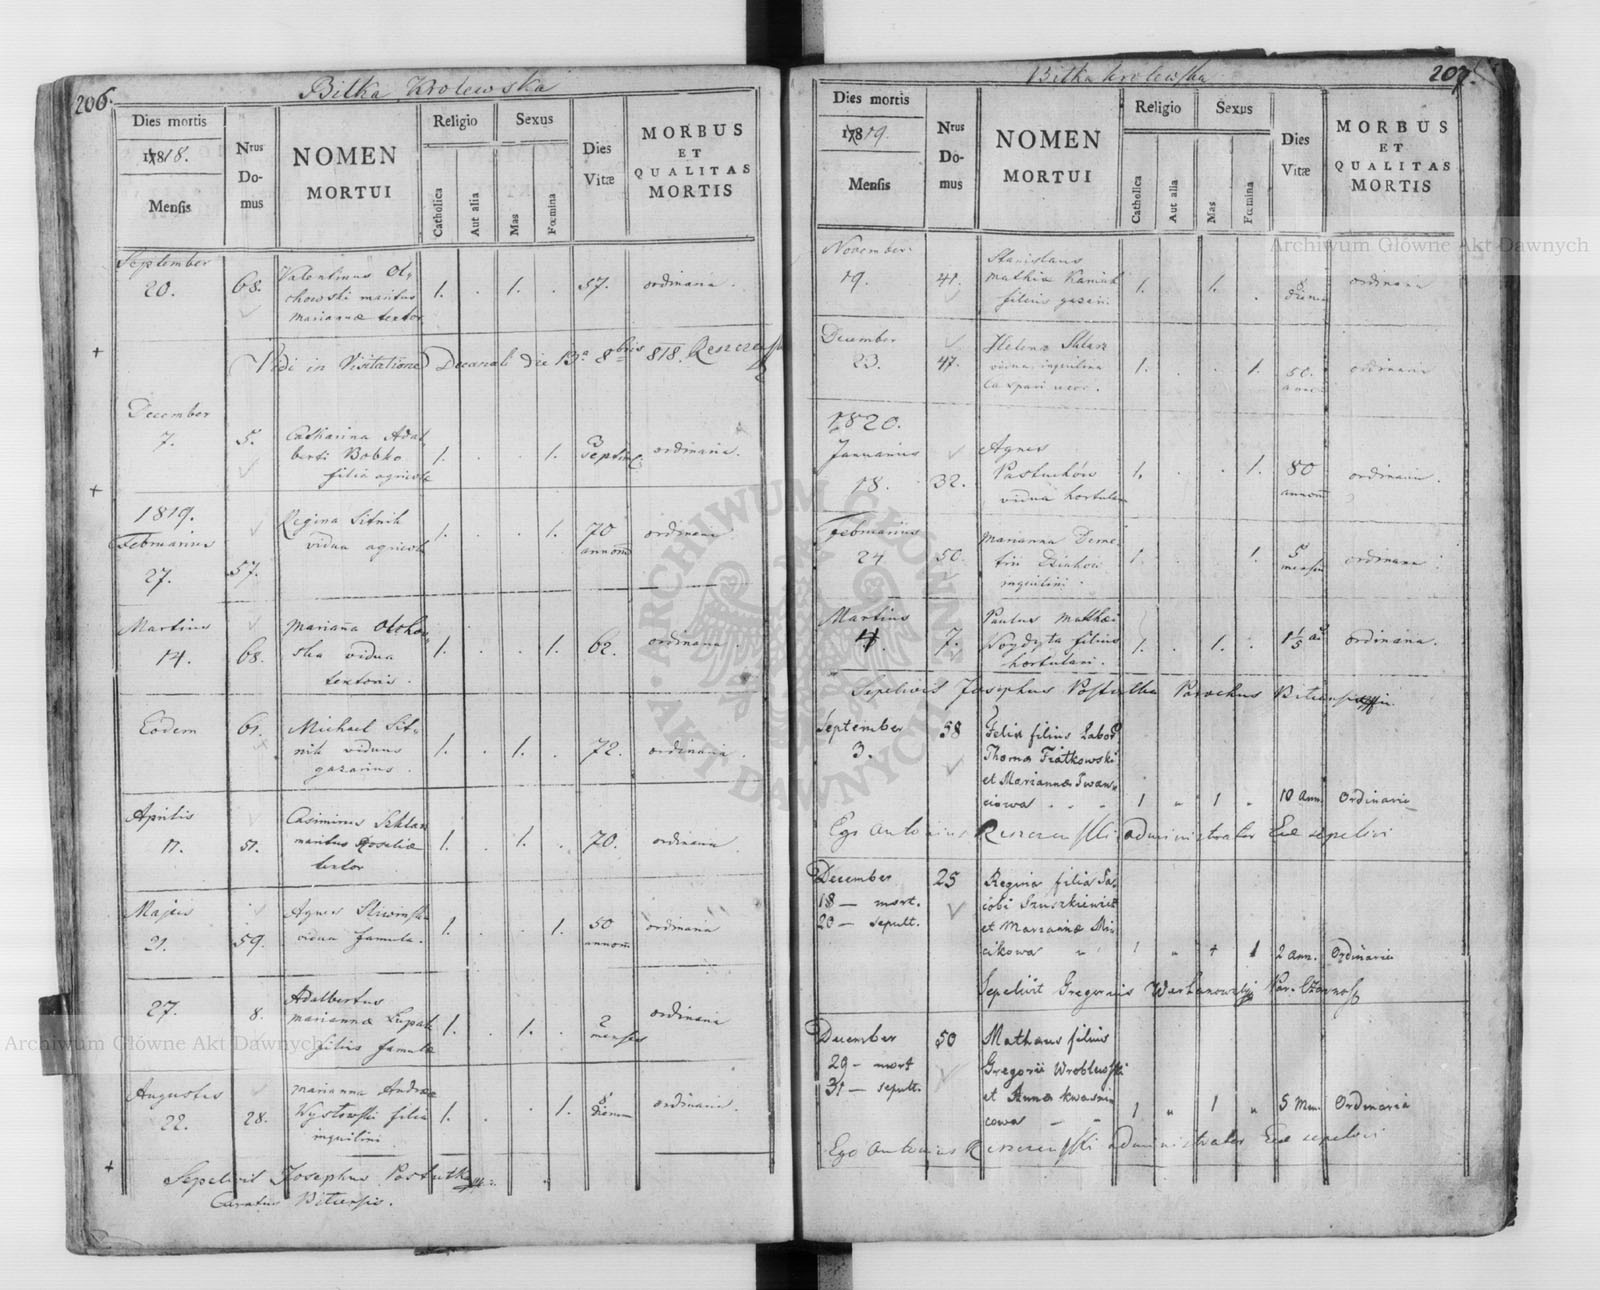 206.
Bilka Krolewska
Dies mortis
1818.
Mensis
Nrus
Do-
mus
NOMEN
MORTUI
Religio
Catholica
Aut alia
Sexus
Mas
Fœmina
Dies
Vitæ
MORBUS
ET
QUALITAS
MORTIS
September
20.
68.
Valentinus Ol-
chowski maritus
Mariannæ textor
1. . 1. .
57.
ordinaria.
Vidi in Visitatione Decanali die 13a 8bris 818.
December
7.
5.
Catharina Adal-
berti Bobko
filia agricolæ
1. . . 1.
3
septim.
ordinaria.
1819.
Februarius
27.
57.
Regina Sitnik
vidua agricolæ
1. . . 1.
70
annorum
ordinaria.
Martius
14.
68.
Marianna Olcho-
ska vidua
textoris.
1. . . 1.
62.
ordinaria.
Eodem
61.
Michael Sit-
nik viduus
gazarius.
1. . 1. .
72.
ordinaria.
Aprilis
11.
51.
Casimirus Szklarz
maritus Rosaliæ
textor
1. . 1. .
70.
ordinaria.
Majus
21.
59.
Agnes
vidua famula.
1. . . 1.
50
annorum
ordinaria
27.
8.
Adalbertus
Mariannæ
filius famulæ
1. . 1. .
2
menses
ordinaria
Augustus
22.
28.
Marianna Andreæ
Wystowski filia
inquilini
1. . . 1.
8
dierum
ordinaria.
Sepelivit Josephus Postutka
Curatus Bilcensis.
207.
Bilka krolewska
Dies mortis
1819.
Mensis
Nrus
Do-
mus
NOMEN
MORTUI
Religio
Catholica
Aut alia
Sexus
Mas
Fœmina
Dies
Vitæ
MORBUS
ET
QUALITAS
MORTIS
November
19.
41.
Stanislaus
Mathiæ
filius gazarii
1. . 1. .
8
dierum
ordinaria
December
23.
47.
Helena Szklarz
vidua, inquilina
Caspari uxor.
1. . . 1.
50.
annorum
ordinaria
1820.
Januarius
18.
32.
Agnes
Pastuchów
vidua hortulani
1. . . 1.
80
annorum
ordinaria.
Februarius
24
50.
Marianna Deme-
trii Dziukow
inquilini.
1. . 1.
5
mensium
ordinaria.
Martius
4.
7.
Paulus Matthæi
Woydyta filius
hortulani.
1. . 1. .
1 1/5 an.
ordinaria.
Sepelivit Josephus Postutka Parochus Bilcensis
September
3.
58
Felix filius Labor
Thoma Fiałkowski
et Mariannæ Iwan-
ciowa
1 " 1 "
10 Ann.
Ordinaria
Ego Antonius administrator Eccl sepelivi
December
18 — mort.
20 — sepult.
25
Regina filia Ja-
cobi Szuszkiewicz
et Mariannæ Mi-
cikowa
1 " + 1
2 ann.
Ordinaria
Sepelivit Gregorius Warhanowski Par. Czarnosz
December
29 — mort
31 — sepult.
50
Mathæus filius
Gregorii Wroblewski
et Annæ kwasni-
cowa
1 " 1 "
5 Men.
Ordinaria
Ego Antonius administrator Eccl sepelivi
Archiwum Główne Akt Dawnych
Archiwum Główne Akt Dawnych
ARCHIWUM GŁÓWNE
AKT DAWNYCH